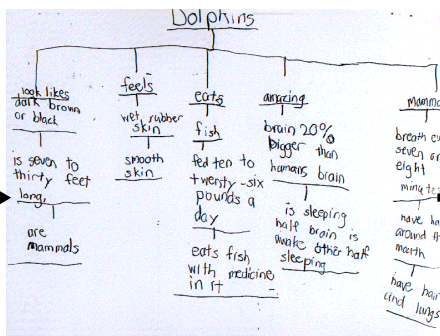 Dolpkins
look likes
dark brown
or black
is seven to
thirty feet
long,
are
mammals
feels
wet, rubber
skin
smooth
skin
eats
fish
fed ten to
twersty-six
pounds a
day
eats fish
with medicine
in it
amazing
brain 20%
bigger than
humans brain
is sleeping
half brain is
awake other half
sleeping
mamma
breath
seven or
eight
minutes
have ha
around th
mouth
have hair
and lungs